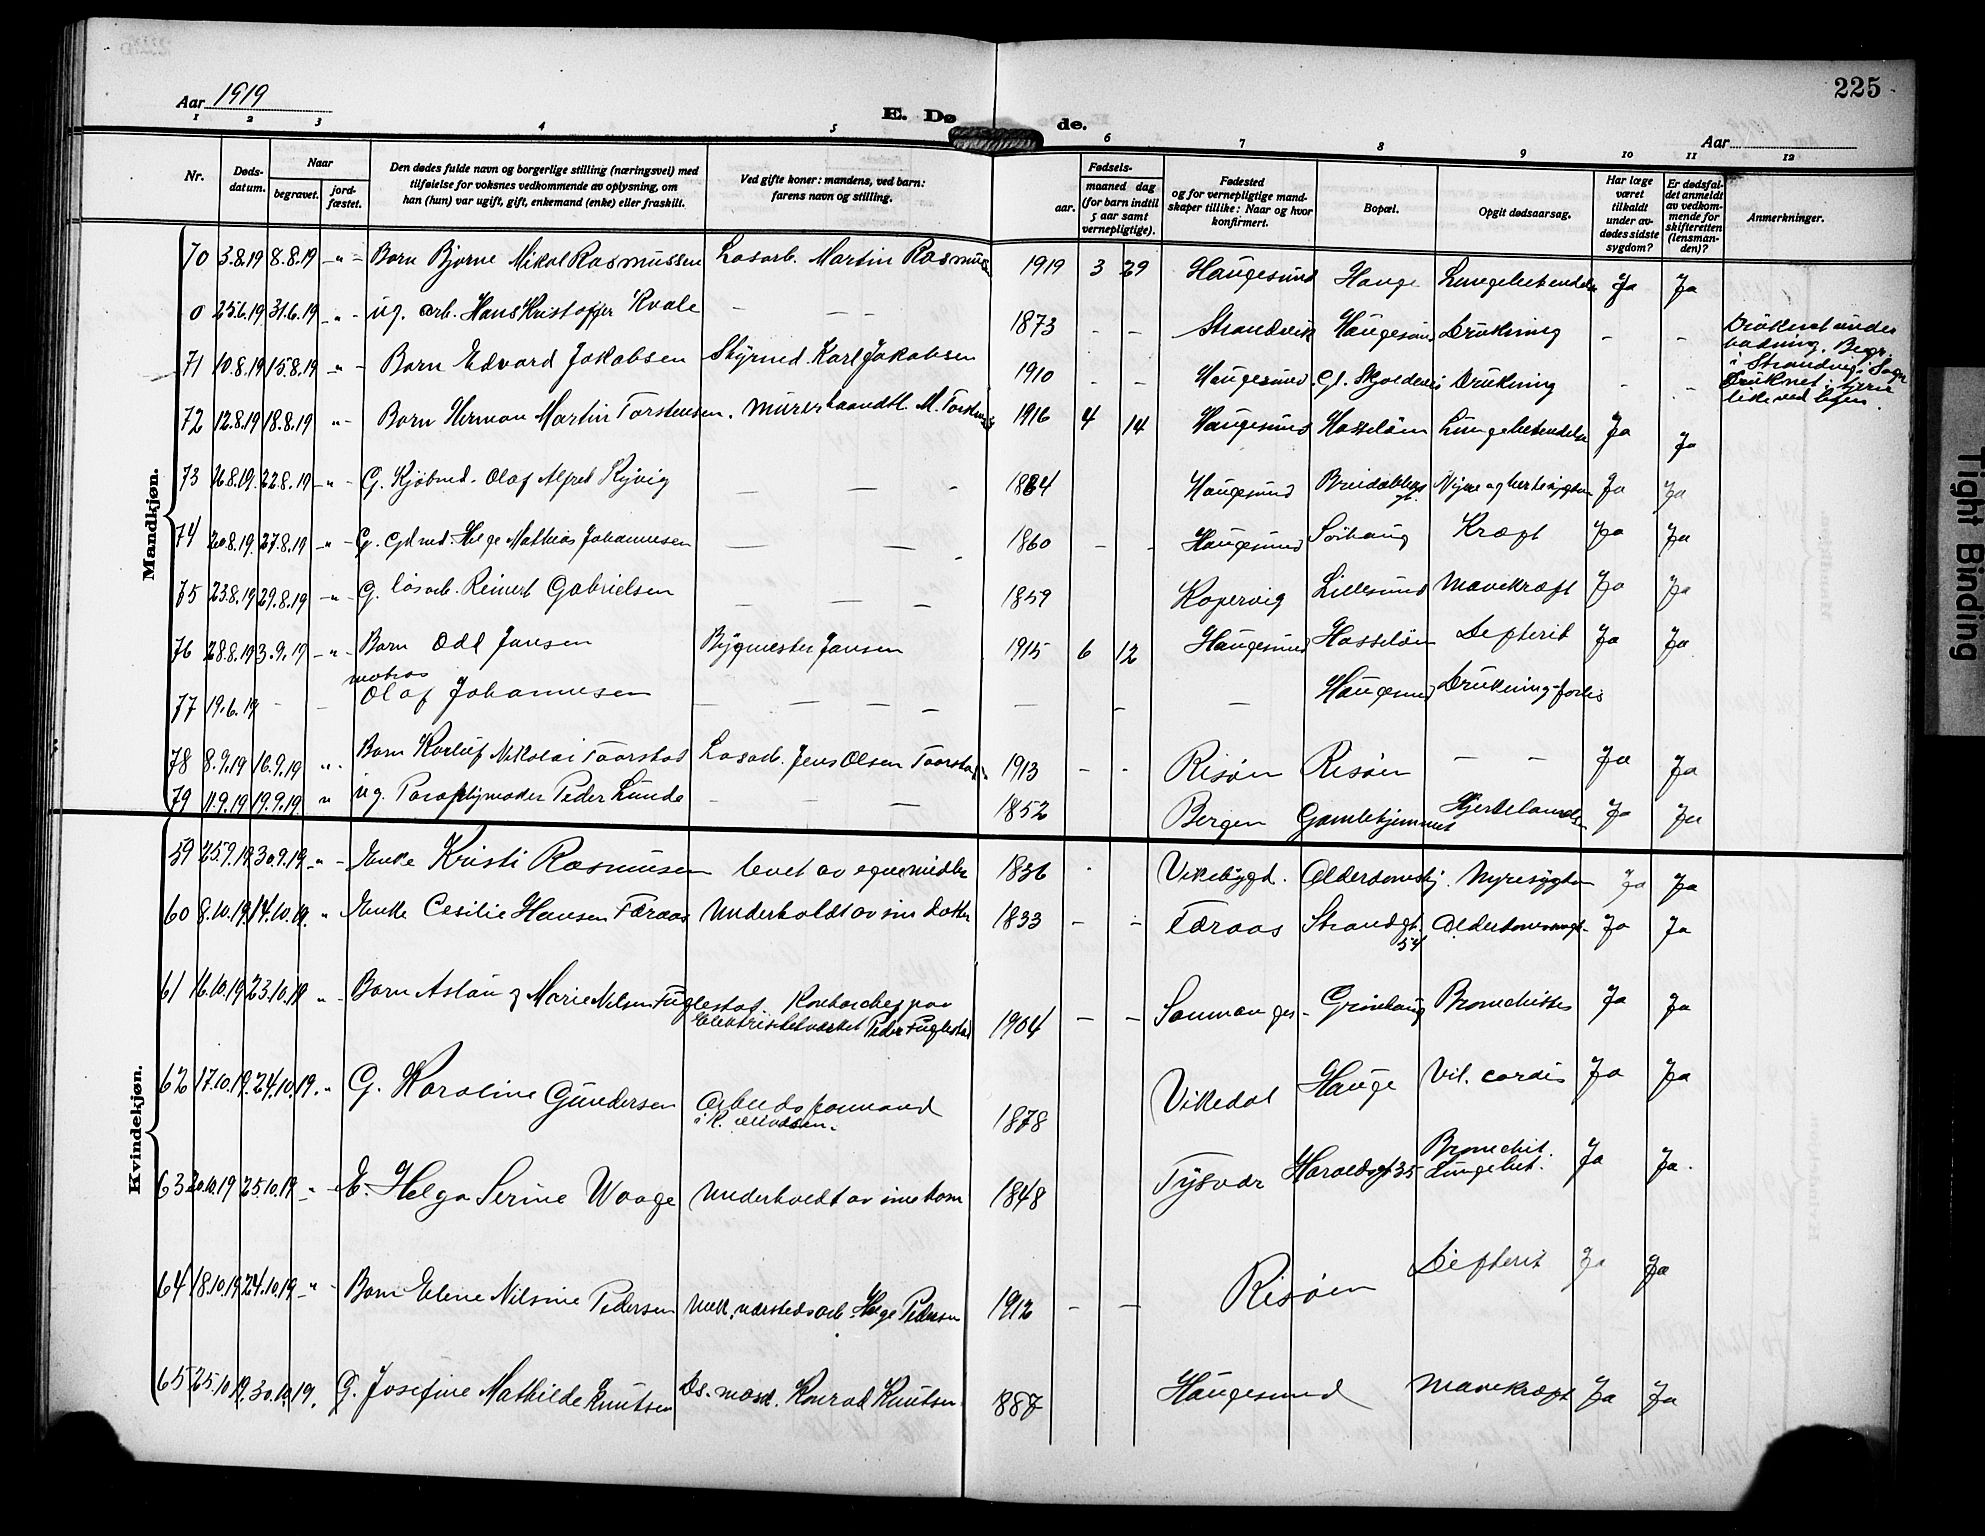 225
Aar 1919
E. Dø de.
Aar
1 2 3 4 5 6 7 8 9 10 11 12
Nr. Døds-datum. Naar begravet. jord-fæstet. Den dødes fulde navn og borgerlige stilling (næringsvei) med tilføielse for voksnes vedkommende av oplysning, om han (hun) var ugift, gift, enkemand (enke) eller fraskilt. Ved gifte koner: mandens, ved barn: farens navn og stilling. Fødsels- aar. maaned dag (for barn indtil 5 aar samt vernepligtige). Fødested og for vernepligtige mandskaper tillike: Naar og hvor konfirmert. Bopæl. Opgit dødsaarsag. Har læge været tilkaldt under avdødes sidste sygdom? Er dødsfaldet anmeldt av vedkommende for skifteretten (lensmanden)? Anmerkninger.
Mandkjøn.
70 3.8.19 8.8.19 -"- Barn Bjarne Mikal Rasmussen Løsarb. Martin Rasmus 1919 3 29 Haugesund Hauge Lungebetendelse Ja Ja
0 25.6.19 31.6.19 -"- ug. arb. Hans Kristoffer Kvale - - - 1873 - - Strandvik Haugesund Drukning - - Druknet under badning. Begr. i Strandvig i Sogn
71 10.8.19 15.8.19 -"- Barn Edvard Jakobsen Styrmd. Karl Jakobsen 1910 - - Haugesund Gl. Skjoldevei Drukning - - Druknet i tjern like ved byen.
72 12.8.19 18.8.19 "- Barn Herman Martin Torstensen. Murerhaandtl. M. Torstensen 1916 4 14 Haugesund Hasseløen Lungebetendelse Ja Ja
73 16.8.19. 22.8.19 -"- G. Kjøbmd. Olaf Alfred Ryvig - - - 1884 Haugesund Breidablikgt. Nyre og hertesygdom Ja Ja
74 20.8.19. 27.8.19 -"- G. Gdmd. Helge Mathias Johannesen - - - 1860 - - Haugesund Sørhaug Kræft Ja Ja
75 23.8.19 29.8.19 -"- G. løsarb. Reinert Gabrielsen - - - 1859 Kopervig Lillesund Mavekræft Ja Ja
76 28.8.19 3.9.19 -"- Barn Odd Jansen Bygmester Jansen 1915 6 12 Haugesund Hasseløen Difterit Ja Ja
77 19.6.19 - - matros Olaf Johannesen - - - - - - - Haugesund Drukning-forlis
78 8.9.19 16.9.19 "- Barn Karluf Nikolai Taarstad Løsarb. Jens Olsen Taarstad 1913 - - Risøen Risøen - - Ja Ja
79 11.9.19 19.9.19 " ug. Paraplymager Peder Lunde - - - 1852 Bergen Gamlehjemmet Hjertelammelse Ja Ja
Kvindekjøn.
59 25.9.19 30.9.19 "- Enke Kristi Rasmusen levet av egne midler 1836 - Vikebygd. Alderdomshj. Nyresygdom Ja Ja
60 8.10.19 14.10.19. "- Enke Cesilie Hansen Færaas Underholdt av sin datter 1833 - - Færaas Strandgt. 54 Alderdomssvagh. Ja Ja
61 16.10.19 23.10.19 "- Barn Aslaug Marie Nilsen Fuglestad Kontorchef paa Elektrisitetverket Peder Fuglestad 1904 - - Samnanger - Grønhaug Bronchittis Ja Ja
62 17.10.19. 24.10.19. "- G. Karoline Gundersen Arbeidsformand 1878 Vikedal Hauge Vit. cordis Ja Ja
63 20.10.19 25.10.19 "- E. Helga Serine Waage Underholdt av sine barn 1848 Tysvær Haraldsgt 35 Bronchit. Lungebet. Ja Ja.
64 18.10.19 24.10.19 "- Barn Eline Nilsine Pedersen Mek. værstedsarb. Helge Pedersen 1912 - - Risøen Difterit Ja Ja
65 25.10.19. 30.10.19. G. Josefine Mathilde Knutsen Ds. mask. Konrad Knutsen 1887 Haugesund Mavekræft Ja Ja
Tight Binding